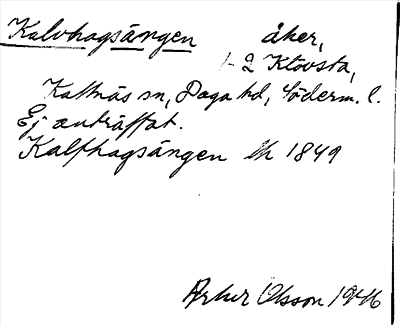 Kalvhagsängen åker,
1-2 Klövsta,
Kattnäs sn, Daga hd, Söderm. l.
Ej anträffat.
Kalfhagsängen Lh 1849
Artur Olsson 1946